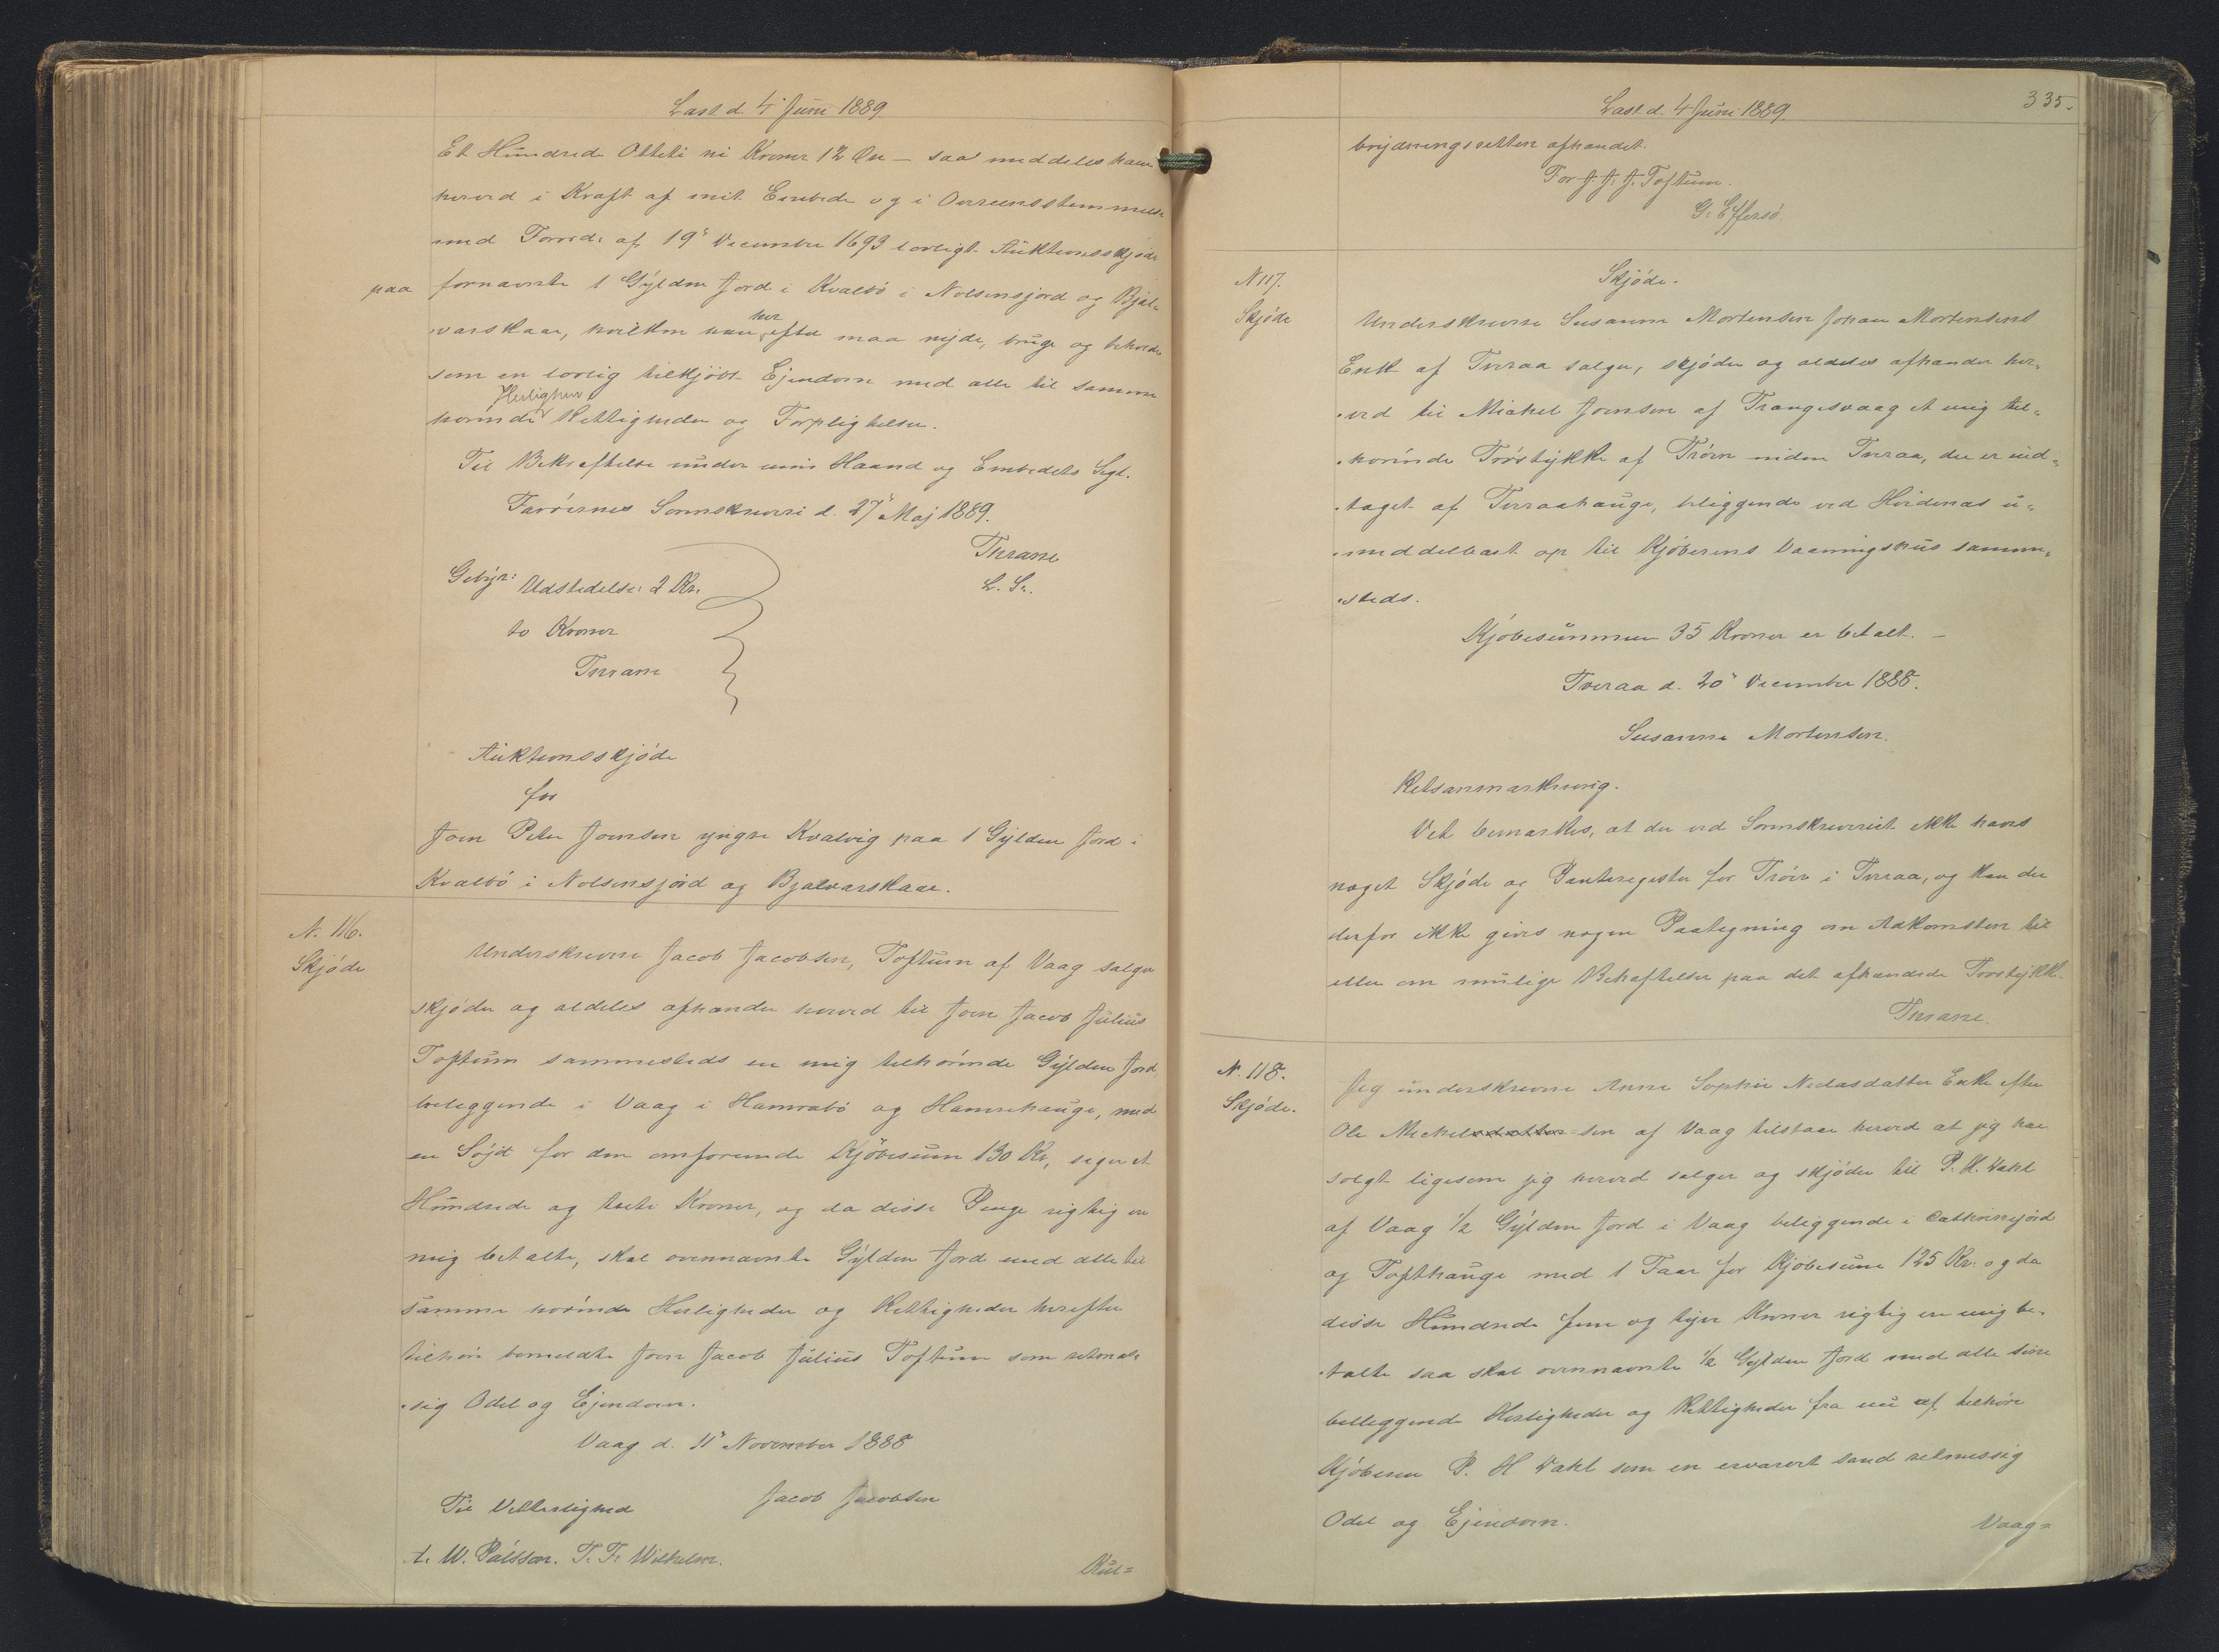 Læst d. 4' Juni 1889
Et Hundrede Otteti ni Kroner 12 Øre — saa meddeles ham
herved i Kraft af mit Embede og i Overeensstemmelse
med Forord: af 19' December 1693 lovligt Auktionsskjøde
paa fornævnte 1 Gylden Jord i Kvalbø i Nolsensjord og Bjæl-
varskaar, hvilken han her efter maa nyde, bruge og beholde
som en lovlig tilkjøbt Ejendom med alle til samme
hørende Herligheder Rettigheder og Forpligtelser.
Til Bekræftelse under min Haand og Embedets Segl.
Færøernes Sorenskriveri d. 27' Maj 1889.
Thrane
L. S.
Gebyr: Udstedelse: 2 Kr.
to Kroner
Thrane
Auktionsskjøde
for
Joen Peter Joensen yngre Kvalvig paa 1 Gylden Jord i
Kvalbø i Nolsensjord og Bjælvarskaar.
N. 116.
Skjøde
Underskrevne Jacob Jacobsen, Toftum af Vaag sælger
skjøder og aldeles afhænder herved til Joen Jacob Julius
Toftum sammesteds en mig tilhørende Gylden Jord,
beliggende i Vaag i Hamrabø og Hamrehauge, med
en Søjd for den omforenede Kjøbesum 130 Kr, siger et
Hundrede og treti Kroner, og da disse Penge rigtig ere
mig betalte, skal ovennævnte Gylden Jord med alle til
samme hørende Herligheder og Rettigheder herefter
tilhøre bemeldte Joen Jacob Julius Toftum som retmæs-
sig Odel og Ejendom.
Vaag d. 11' November 1888
Jacob Jacobsen
Til Vitterlighed
A. W. Pálsson. T. F. Wilhelm.
Læst d. 4 Juni 1889.
335.
brigdningsretten afhændet.
For J. J. J. Toftum.
G. Effersö.
N 117.
Skjøde
Skjøde.
Underskrevne Susanne Mortensen Johan Mortensens
Enke af Tveraa sælger, skjøder og aldeles afhænder her-
ved til Michel Joensen af Trangesvaag et mig til-
hørende Jordstykke af Trøen niden Tveraa, der er ind-
taget af Tveraahauge, beliggende ved Hvidenæs u-
middelbart op til Kjøberens Vaaningshus samme-
steds.
Kjøbesummen 35 Kroner er betalt. —
Tveraa d. 20' December 1888.
Susanne Mortensen.
Retsanmærkning.
Det bemærkes, at der ved Sorenskriveriet ikke haves
noget Skjøde og Panteregister for Trøer i Tveraa, og kan der
derfor ikke gives nogen Paategning om Adkomsten til
eller om mulige Behæftelser paa det afhændede Jordstykke.
Thrane.
N. 118.
Skjøde.
Jeg underskrevne Anne Sophie Nielasdatter Enke efter
Ole Michelsdatter-sen af Vaag tilstaar herved at jeg har
solgt ligesom jeg herved sælger og skjøder til P. H. Dahl
af Vaag 1/2 Gylden Jord i Vaag beliggende i Cathrinejord
og Tofthauge med 1 Faar for Kjøbesum 125 Kr. og da
disse Hundrede fem og tyve Kroner rigtig ere mig be-
talte saa skal ovennævnte 1/2 Gylden Jord med alle sine
belleggende Herligheder og Rettigheder fra nu af tilhøre
Kjøberen P. H Dahl som en andet retmessig
Odel og Ejendom.
Vaag=